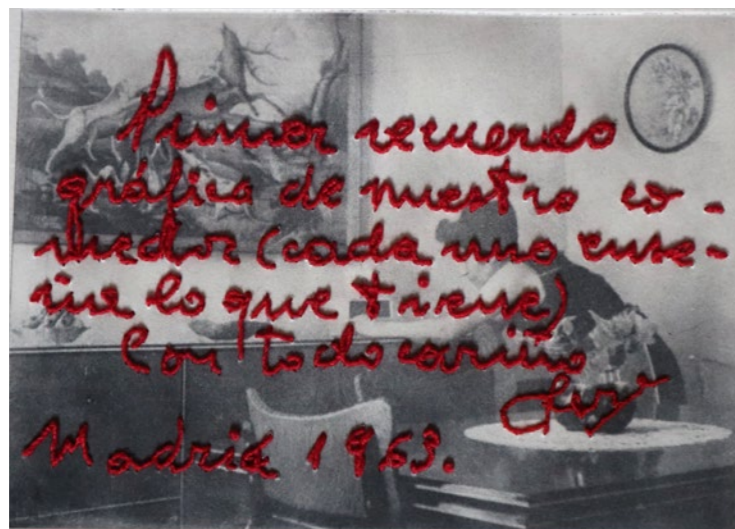 Primer recuerdo
gráfico de nuestro co-
medor (cada uno ense-
ñe lo que tiene)
Con todo cariño
Madrid 1963.